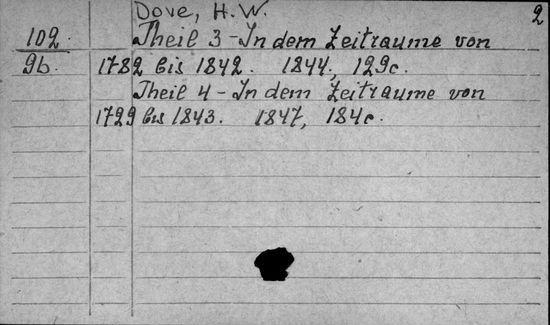 Dove, H. W. 2
102. Theil 3 - In dem Zeitraume von
9b. 1782 bis 1842. 1844, 129c.
Theil 4 - In dem Zeitraume von
1729 bis 1843. 1847, 184c.